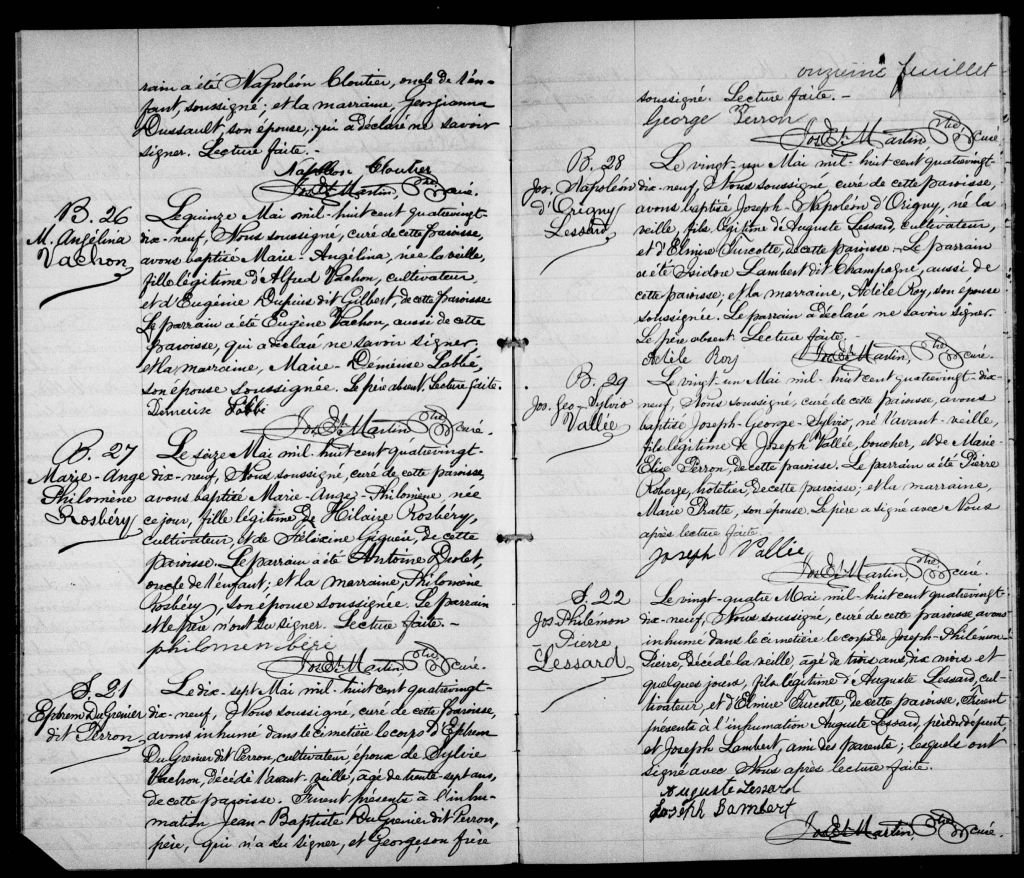 rain a été Napoléon Cloutier, oncle de l'en-
fant, soussigné; et la marraine, Georgianna
Dussault, son épouse, qui a déclaré ne savoir
signer. Lecture faite.-
Napoléon Cloutier
Jos. Et. Martin, Ptre curé.
B. 26
M. Angélina
Vachon
Le quinze Mai mil-huit cent quatrevingt-
dix-neuf, Nous soussigné, curé de cette paroisse,
avons baptisé Marie-Angélina, née la veille,
fille légitime d'Alfred Vachon, cultivateur,
et d'Eugénie Dupuis dit Gilbert, de cette paroisse.
Le parrain a été Eugène Vachon, aussi de cette
paroisse, qui a déclaré ne savoir signer,
et la marraine, Marie-Démérise Labbé,
son épouse soussignée. Le père absent. Lecture faite.
Demerise Labbé
Jos. Et. Martin, Ptre curé.
B. 27
Marie-Ange
Philomène
Rosbéry
Le seize Mai mil huit cent quatrevingt-
dix-neuf, Nous soussigné, curé de cette paroisse,
avons baptisé Marie-Ange-Philomène, née
ce jour, fille légitime de Hilaire Rosbéry,
cultivateur, et de Félixine Giguère, de cette
paroisse. Le parrain a été Antoine Drolet,
oncle de l'enfant; et la marraine, Philomène
Rosbéry, son épouse soussignée. Le parrain
et le père n'ont su signer. Lecture faite.-
philomen béri
Jos. Et. Martin, Ptre curé.
S. 21
Ephrem DuGrenier
dit Perron
Le dix-sept Mai mil-huit cent quatrevingt-
dix-neuf, Nous soussigné, curé de cette paroisse,
avons inhumé dans le cimetière le corps d'Ephrem
DuGrenier dit Perron, cultivateur, époux de Sylvie
Vachon, décédé l'avant-veille, âgé de trente-sept ans,
de cette paroisse. Furent présents à l'inhu-
mation Jean-Baptiste DuGrenier dit Perron,
père, qui n'a su signer, et George, son frère
onzième feuillet
soussigné. Lecture faite.-
George Perron
Jos. Et. Martin, Ptre curé
B. 28
Jos. Napoléon
d'Origny
Lessard
Le vingt-un Mai mil-huit cent quatrevingt-
dix-neuf, Nous soussigné, curé de cette paroisse,
avons baptisé Joseph-Napoléon d'Origny, né la
veille, fils légitime d'Auguste Lessard, cultivateur,
et d'Elmire Turcotte, de cette paroisse. Le parrain
a été Isidore Lambert dit Champagne, aussi de
cette paroisse; et la marraine, Adèle Roy, son épouse
soussignée. Le parrain a déclaré ne savoir signer.
Le père absent. Lecture faite.
Adèle Roy
Jos. Et. Martin, Ptre curé.
B. 29
Jos. Geo-Sylvio
Vallée
Le vingt-un Mai mil-huit cent quatrevingt-dix-
neuf, Nous soussigné, curé de cette paroisse, avons
baptisé Joseph-George-Sylvio, né l'avant-veille,
fils légitime de Joseph Vallée, boucher, et de Marie-
Elise Perron, de cette paroisse. Le parrain a été Pierre
Roberge, hotelier, de cette paroisse; et la marraine,
Marie Pratte, son épouse. Le père a signé avec Nous
après lecture faite.
Joseph Vallée
Jos. Et. Martin, Ptre curé.
S. 22
Jos. Philémon
Pierre
Lessard
Le vingt-quatre Mai mil-huit cent quatrevingt-
dix-neuf, Nous soussigné, curé de cette paroisse avons
inhumé dans le cimetière le corps de Joseph-Philémon-
Pierre, décédé la veille, âgé de trois ans, dix mois et
quelques jours, fils légitime d'Auguste Lessard, cul-
tivateur, et d'Elmire Turcotte, de cette paroisse. Furent
présents à l'inhumation Auguste Lessard, père du défunt
et Joseph Lambert, ami des parents; lesquels ont
signé avec Nous après lecture faite.
Auguste Lessard
Joseph Lambert
Jos. Et. Martin, Ptre curé.